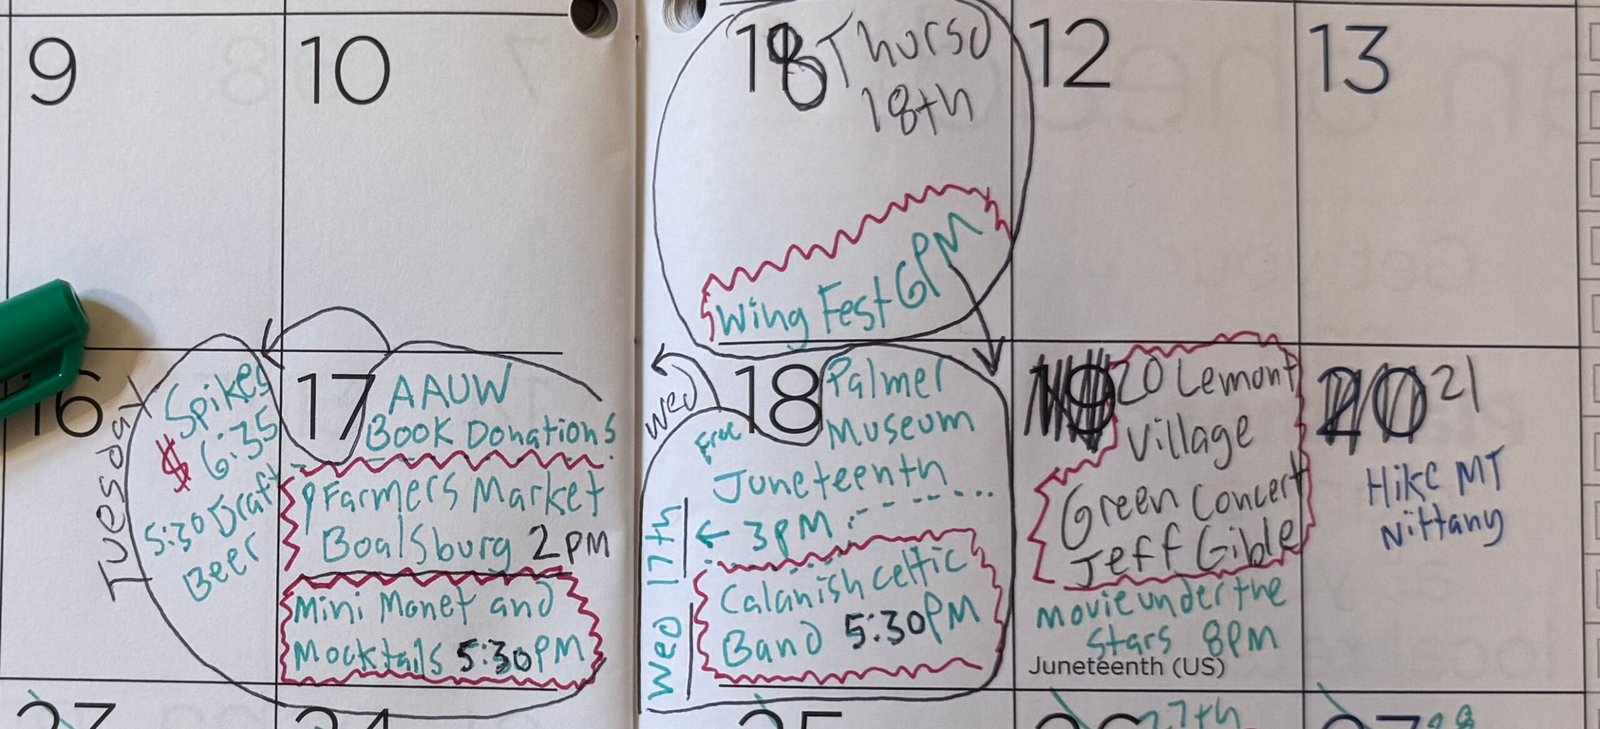 9
10
11 8 Thursd
18th
12
13
Wing Fest 6PM
Tuesday
16
Spikes
$ 6:35
5:30 Draft
Beer
17 AAUW
Book Donations
Farmers Market
Boalsburg 2PM
Mini Monet and
Mocktails 5:30PM
Wed
18 Palmer
Free Museum
Juneteenth
← 3PM
Calanish Celtic
Band 5:30PM
Wed 17th
19 20 Lemont
Village
Green Concert
Jeff Gible
movie under the
Stars 8PM
Juneteenth (US)
20 21
Hike MT
Nittany
23
24
25
26 27th
27 28